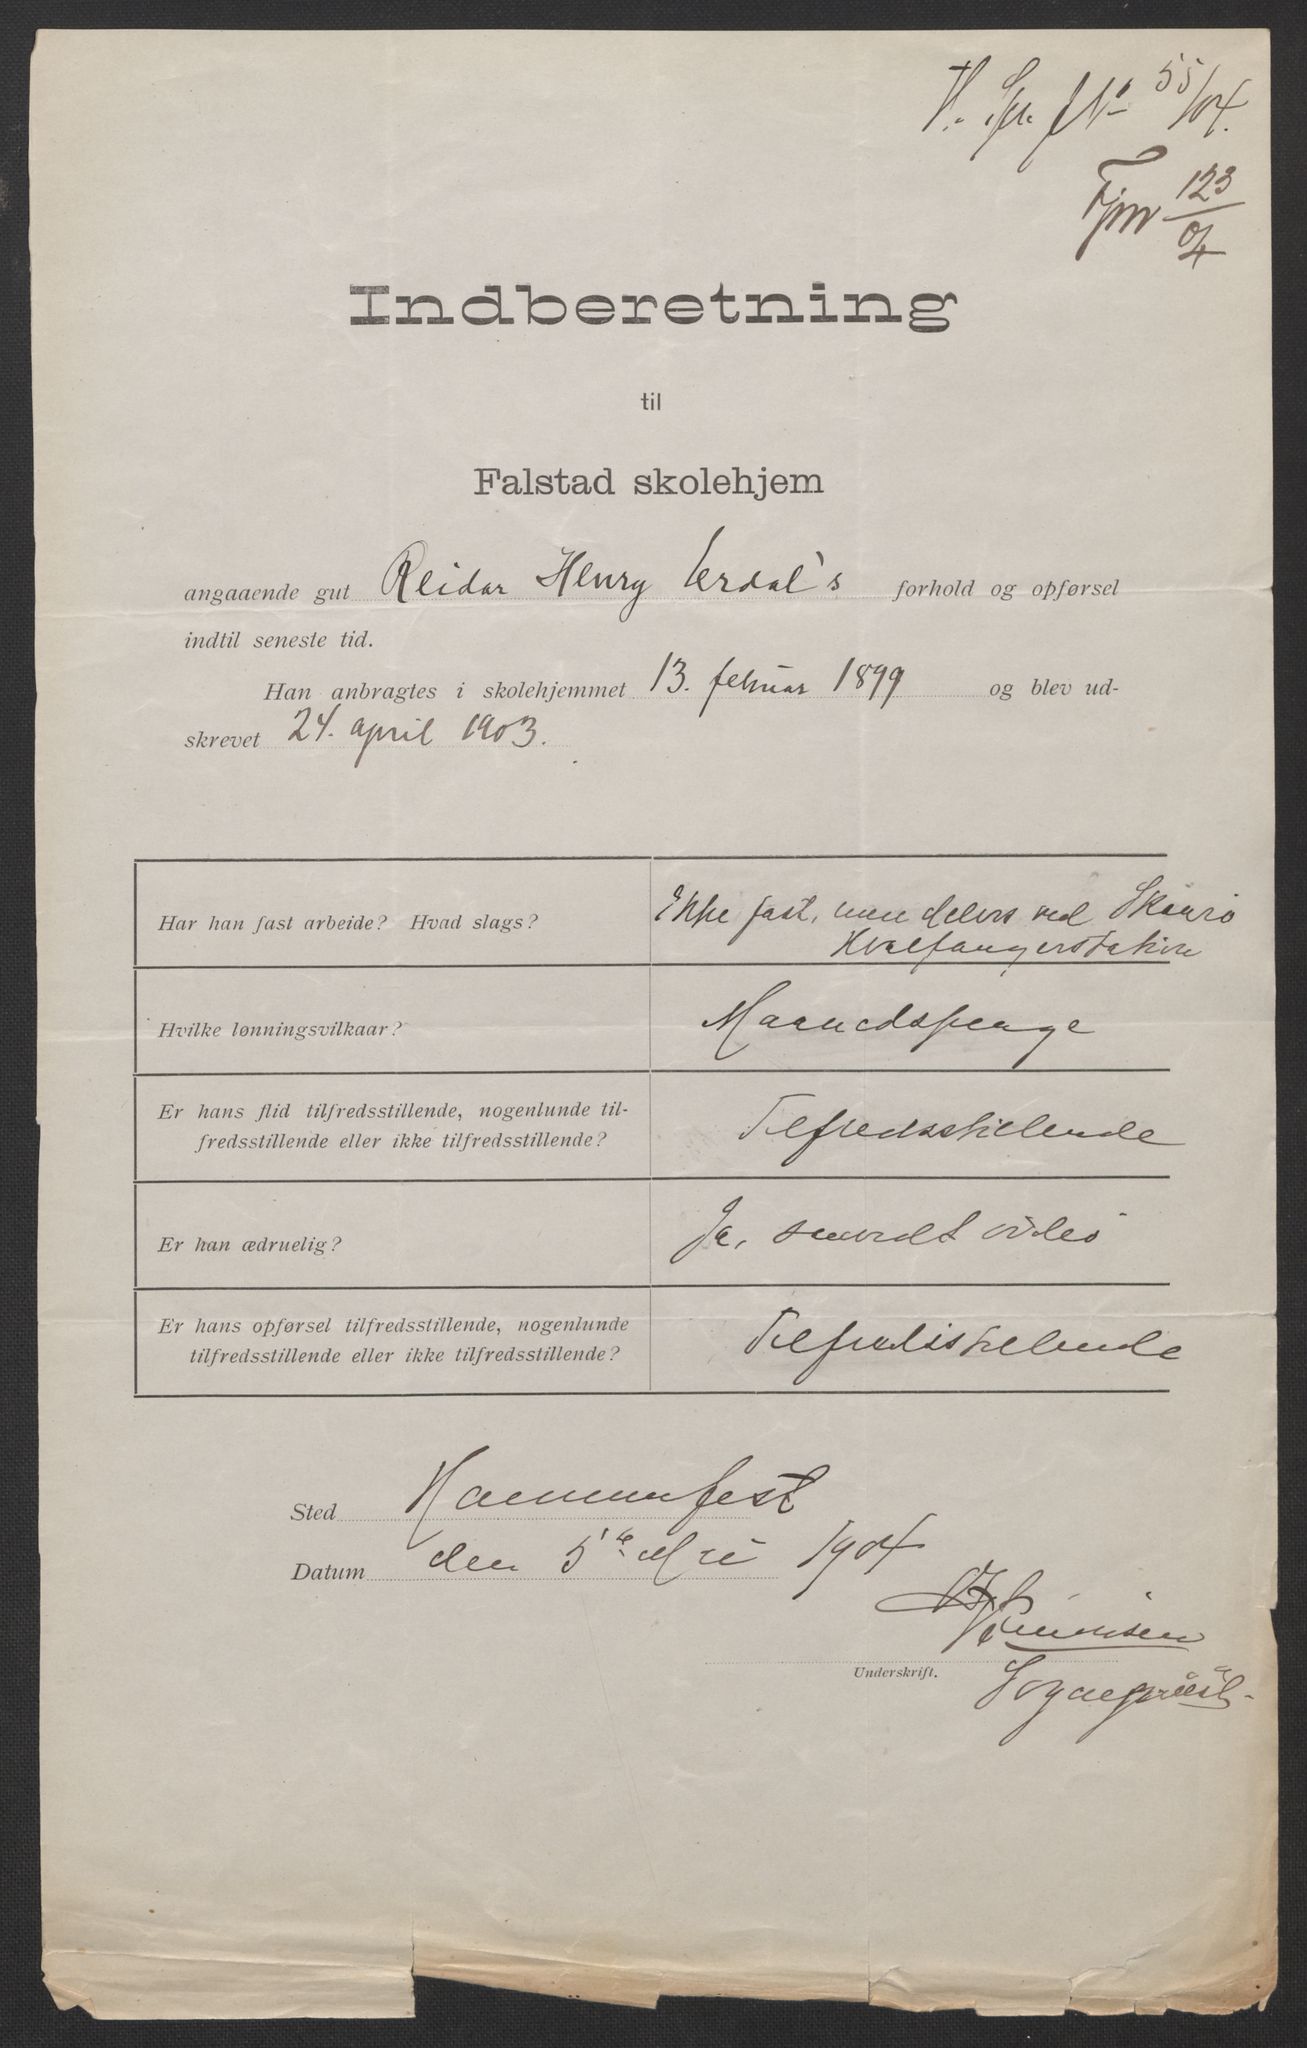 H. Spr. J. No 55/04.
Fjm 123/04
Indberetning
til
Falstad skolehjem
angaaende gut Reidar Henry Erdal's forhold og opførsel
indtil seneste tid.
Han anbragtes i skolehjemmet 13. februar 1899 og blev ud-
skrevet 24. april 1903.
Har han fast arbeide? Hvad slags? Ikke fast, men delvis ved Skaarø
Hvalfangerstation
Hvilke lønningsvilkaar? Maanedspenge
Er hans flid tilfredsstillende, nogenlunde til-
fredsstillende eller ikke tilfredsstillende? Tilfredsstillende
Er han ædruelig? Ja, saavidt vides
Er hans opførsel tilfredsstillende, nogenlunde
tilfredsstillende eller ikke tilfredsstillende? Tilfredsstillende
Sted Hammerfest
Datum den 5te Mai 1904
Underskrift.
Sognepræst.